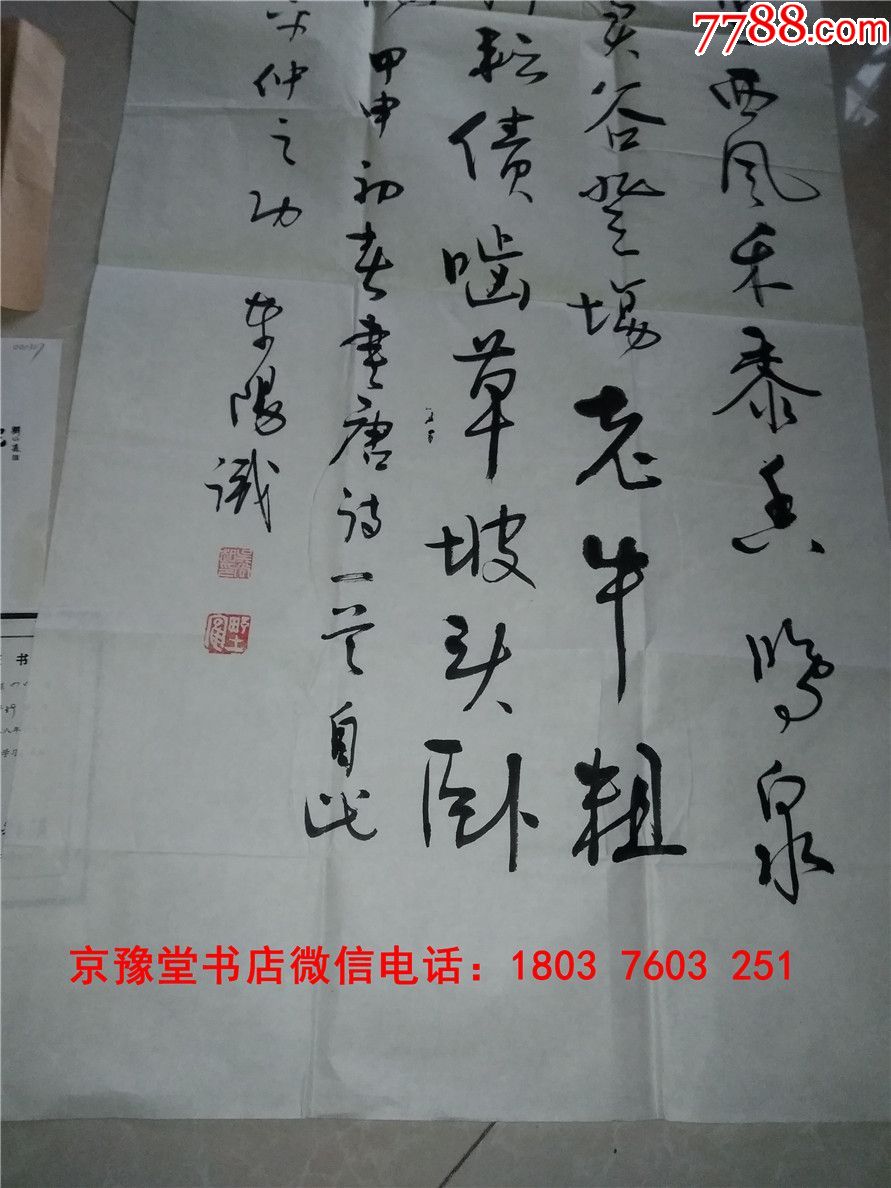 7788.com
西风禾黍香鸣泉
窦谷登場老牛粗
耘債啮草坡头卧
甲申初春書唐诗一首自此
仲之功 东陽識
京豫堂书店微信电话：1803 7603 251